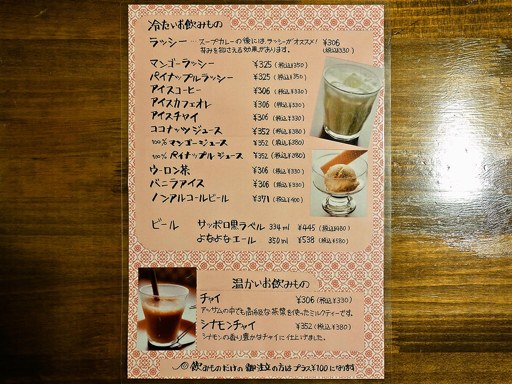 冷たいお飲みもの
ラッシー ‥‥スープカレーの後にはラッシーがオススメ! ¥306
辛みを抑さえる効果があります。 (税込¥330)
マンゴーラッシー ¥325(税込¥350)
パイナップルラッシー ¥325(税込¥350)
アイスコーヒー ¥306(税込¥330)
アイスカフェオレ ¥306(税込¥330)
アイスチャイ ¥306(税込¥330)
ココナッツジュース ¥352(税込¥380)
100%マンゴージュース ¥352(税込¥380)
100%パイナップルジュース ¥352(税込¥380)
ウーロン茶 ¥306(税込¥330)
バニラアイス ¥306(税込¥330)
ノンアルコールビール ¥371(税込¥400)
ビール サッポロ黒ラベル 334ml ¥445(税込¥480)
よなよなエール 350ml ¥538(税込¥580)
温かいお飲みもの
チャイ ¥306(税込¥330)
アッサムの中でも高価な茶葉を使ったミルクティーです。
シナモンチャイ ¥352(税込¥380)
シナモンの香り豊かなチャイに仕上げました。
◎飲みものだけの御注文の方はプラス¥100になります